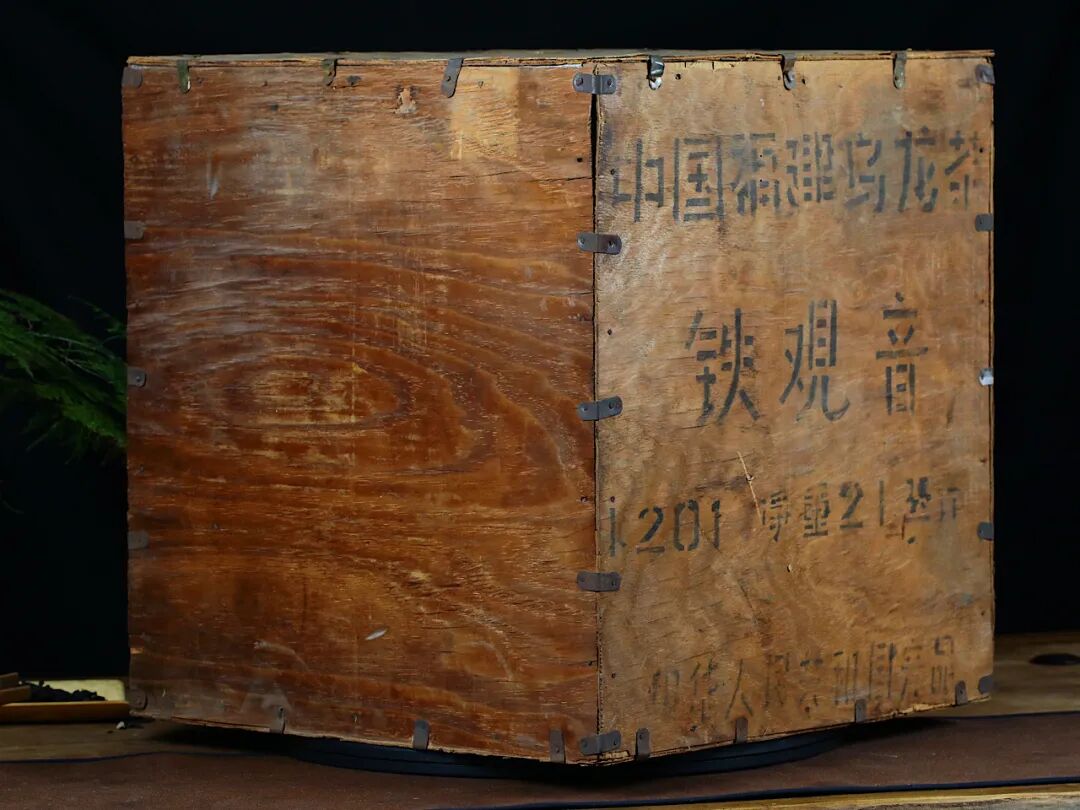 中国福建乌龙茶
铁观音
1201 净重21公斤
中华人民共和国产品